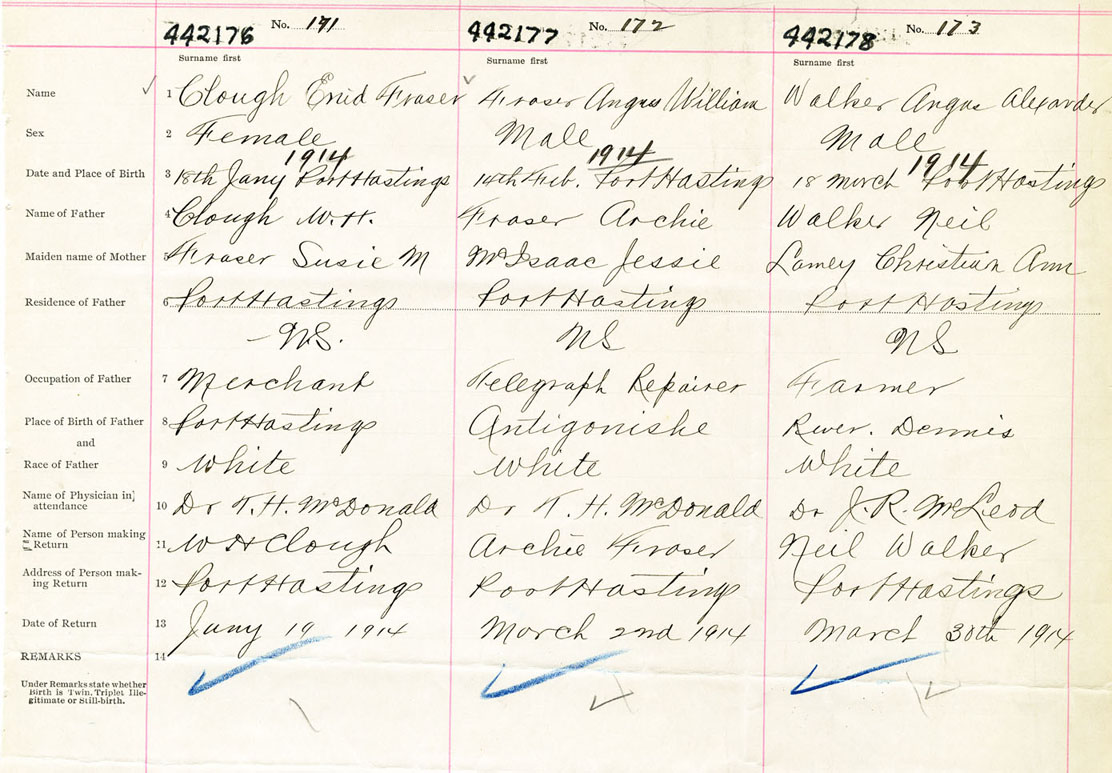 442176 No. 171 442177 No. 172 442178 No. 173
Surname first Surname first Surname first
Name 1 Clough Enid Fraser Fraser Angus William Walker Angus Alexander
Sex 2 Female Male Male
1914 1914 1914
Date and Place of Birth 3 18th Jany Port Hastings 14th Feb. Port Hasting 18 March Port Hasting
Name of Father 4 Clough W.H. Fraser Archie Walker Neil
Maiden name of Mother 5 Fraser Susie M McIsaac Jessie Lamey Christian Ann
Residence of Father 6 Port Hastings Port Hasting Port Hasting
N.S. NS NS
Occupation of Father 7 Merchant Telegraph Repairer Farmer
Place of Birth of Father 8 Port Hasting Antigonishe River. Dennis
and
Race of Father 9 White White White
Name of Physician in
attendance 10 Dr T. H. McDonald Dr T. H. McDonald Dr J. R. McLeod
Name of Person making
Return 11 W H Clough Archie Fraser Neil Walker
Address of Person mak-
ing Return 12 Port Hastings Port Hasting Port Hastings
Date of Return 13 Jany 19 1914 March 2nd 1914 March 30th 1914
REMARKS 14
Under Remarks state whether
Birth is Twin, Triplet Ille-
gitimate or Still-birth.